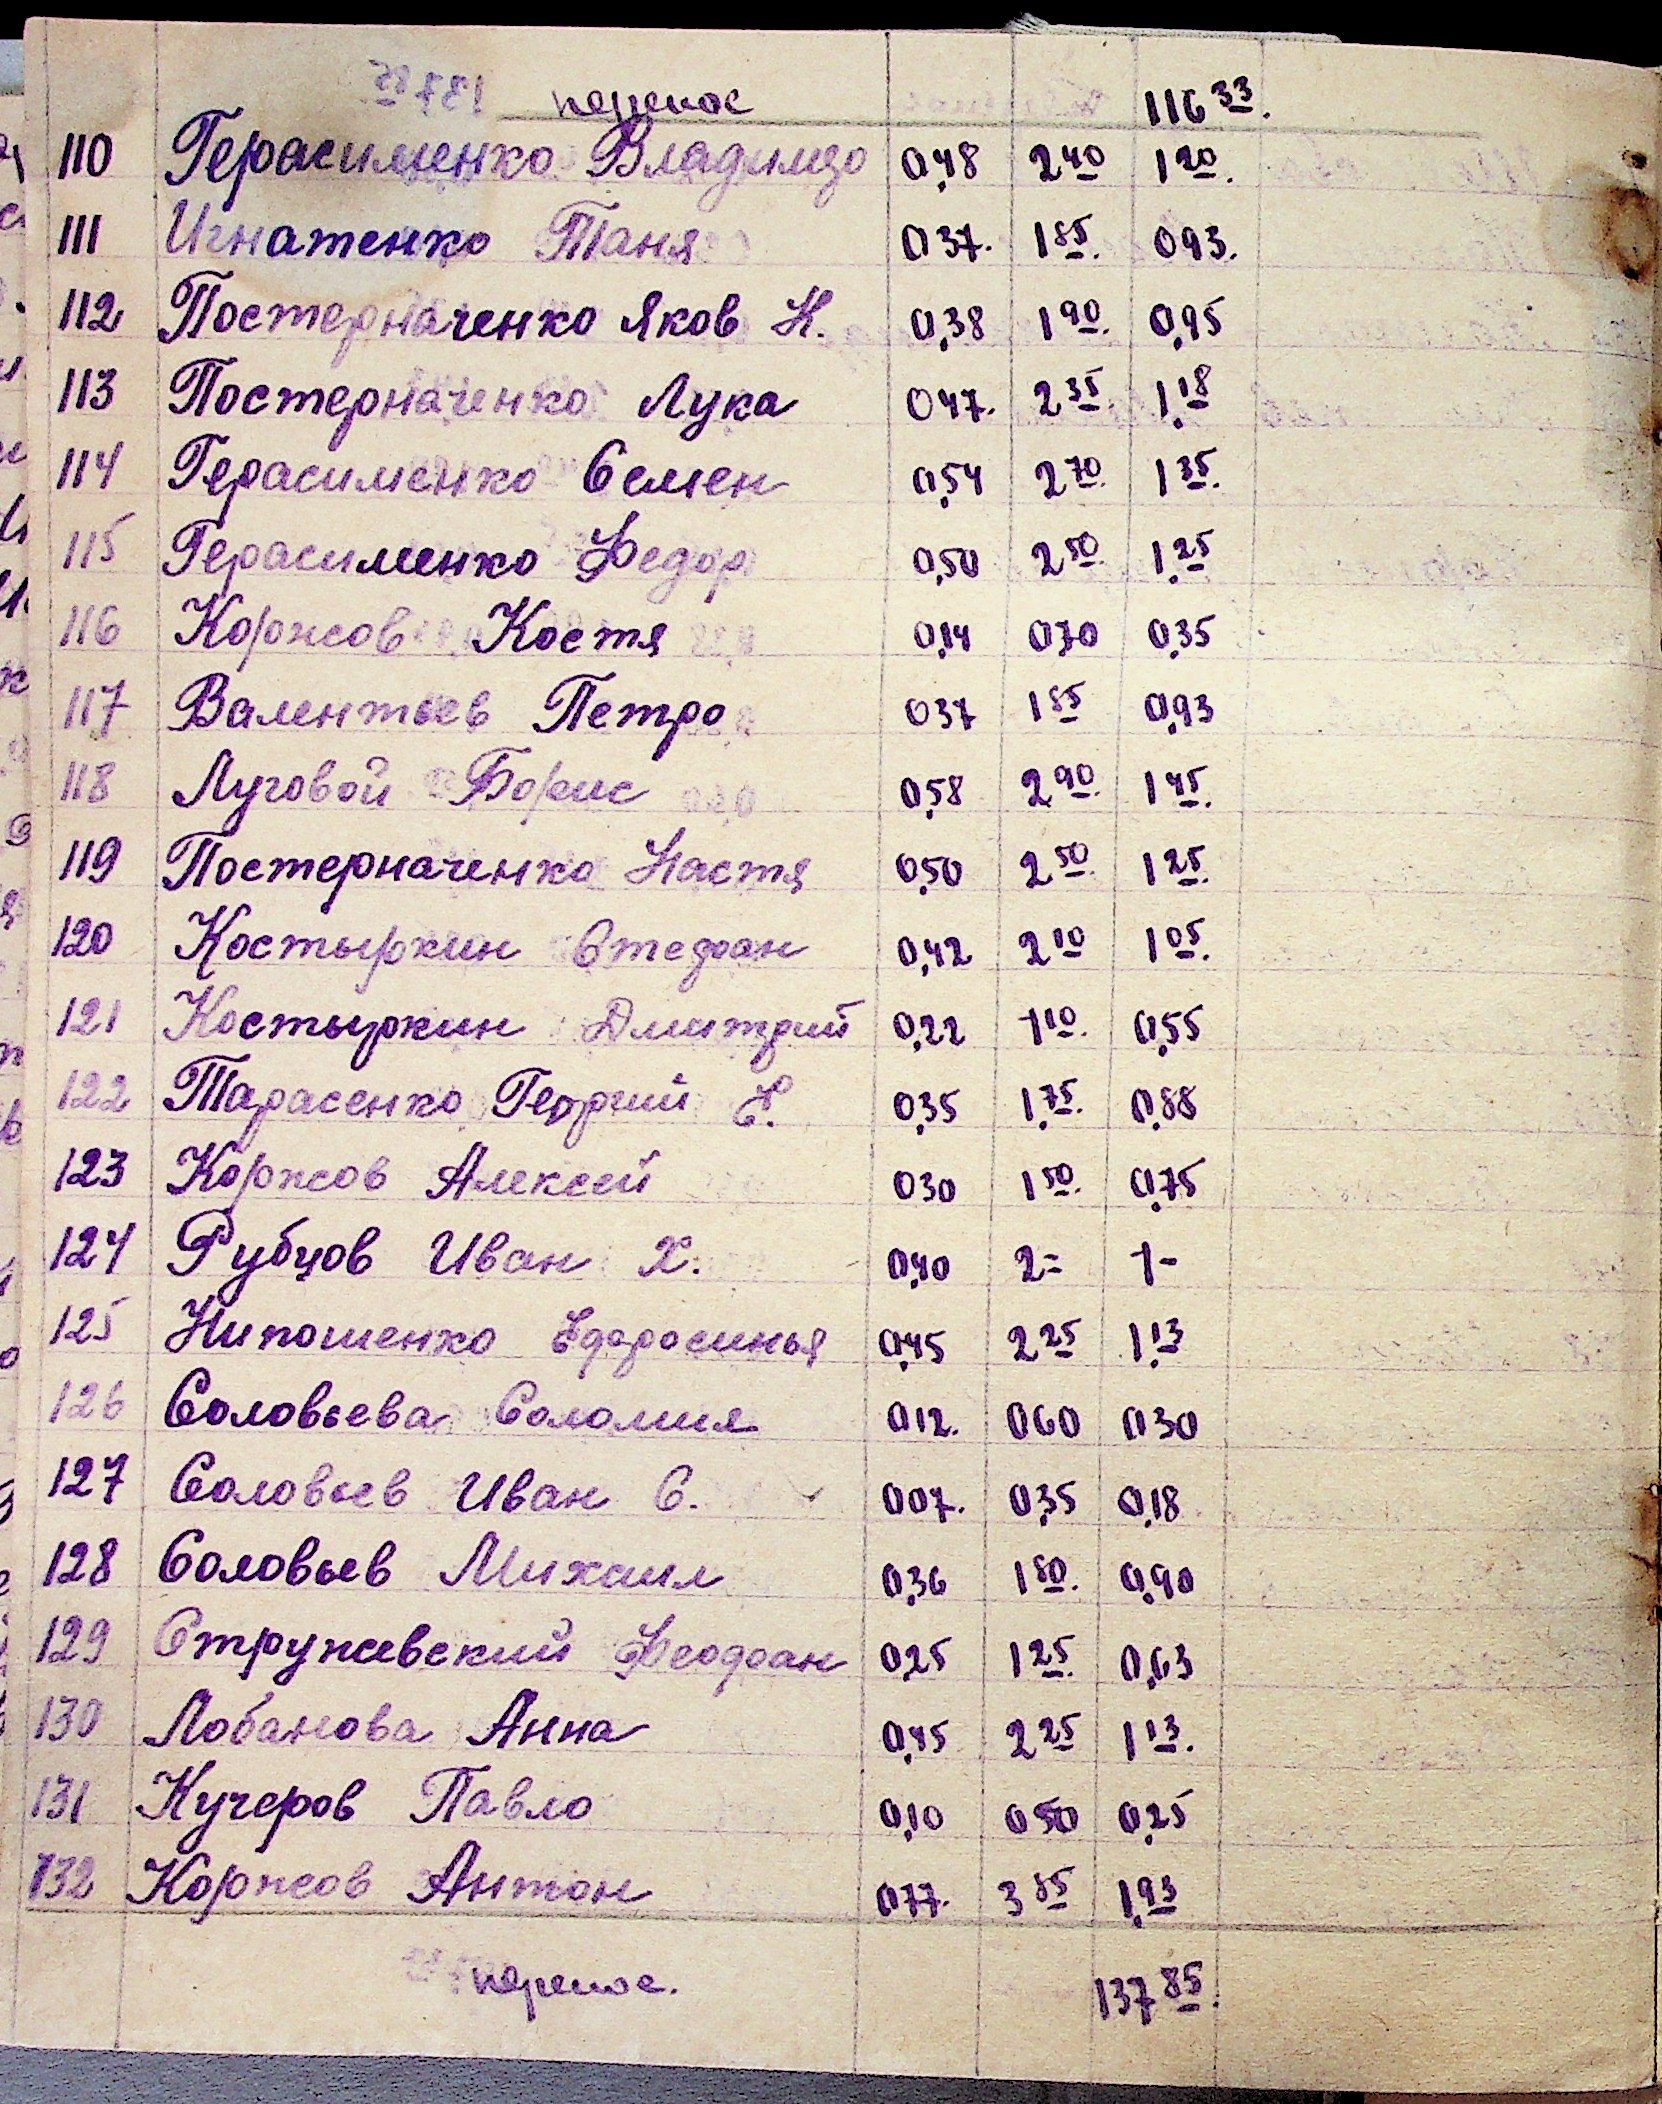 перенос 116 33.
110 Герасименко Владимир 0,48 2 40 1 20.
111 Игнатенко Таня 0 37. 1 85. 0 93.
112 Постерначенко Яков Н. 0,38 1 90. 0,95
113 Постерначенко Лука 0 47. 2 35. 1,18
114 Герасименко Семен 0,54 2 70. 1 35.
115 Герасименко Федор 0,50 2 50. 1,25
116 Коржов Костя 0,14 0,70 0,35
117 Валентьев Петро 0 37 1 85 0,93
118 Луговой Борис 0,58 2 90. 1 45.
119 Постерначенко Настя 0,50 2 50. 1 25.
120 Костыркин Стефан 0,42 2 10 1 05.
121 Костыркин Дмитрий 0,22 1 10. 0,55
122 Тарасенко Георгий Е. 0,35 1,75. 0,88
123 Коржов Алексей 0 30 1 50. 0,75
124 Рубцов Иван Х. 0,40 2= 1-
125 Нипошенко Ефросинья 0,45 2 25 1,13
126 Соловьева Соломия 0 12. 0 60 0 30
127 Соловьев Иван С. 0 07. 0,35 0,18
128 Соловьев Михаил 0,36 1 80. 0,90
129 Стружевский Феофан 0,25 1 25. 0,63
130 Лобанова Анна 0,45 2 25 1 13.
131 Кучеров Павло 0,10 0 50 0,25
132 Коржов Антон 0 77. 3 85 1,93
перенос. 137 85.